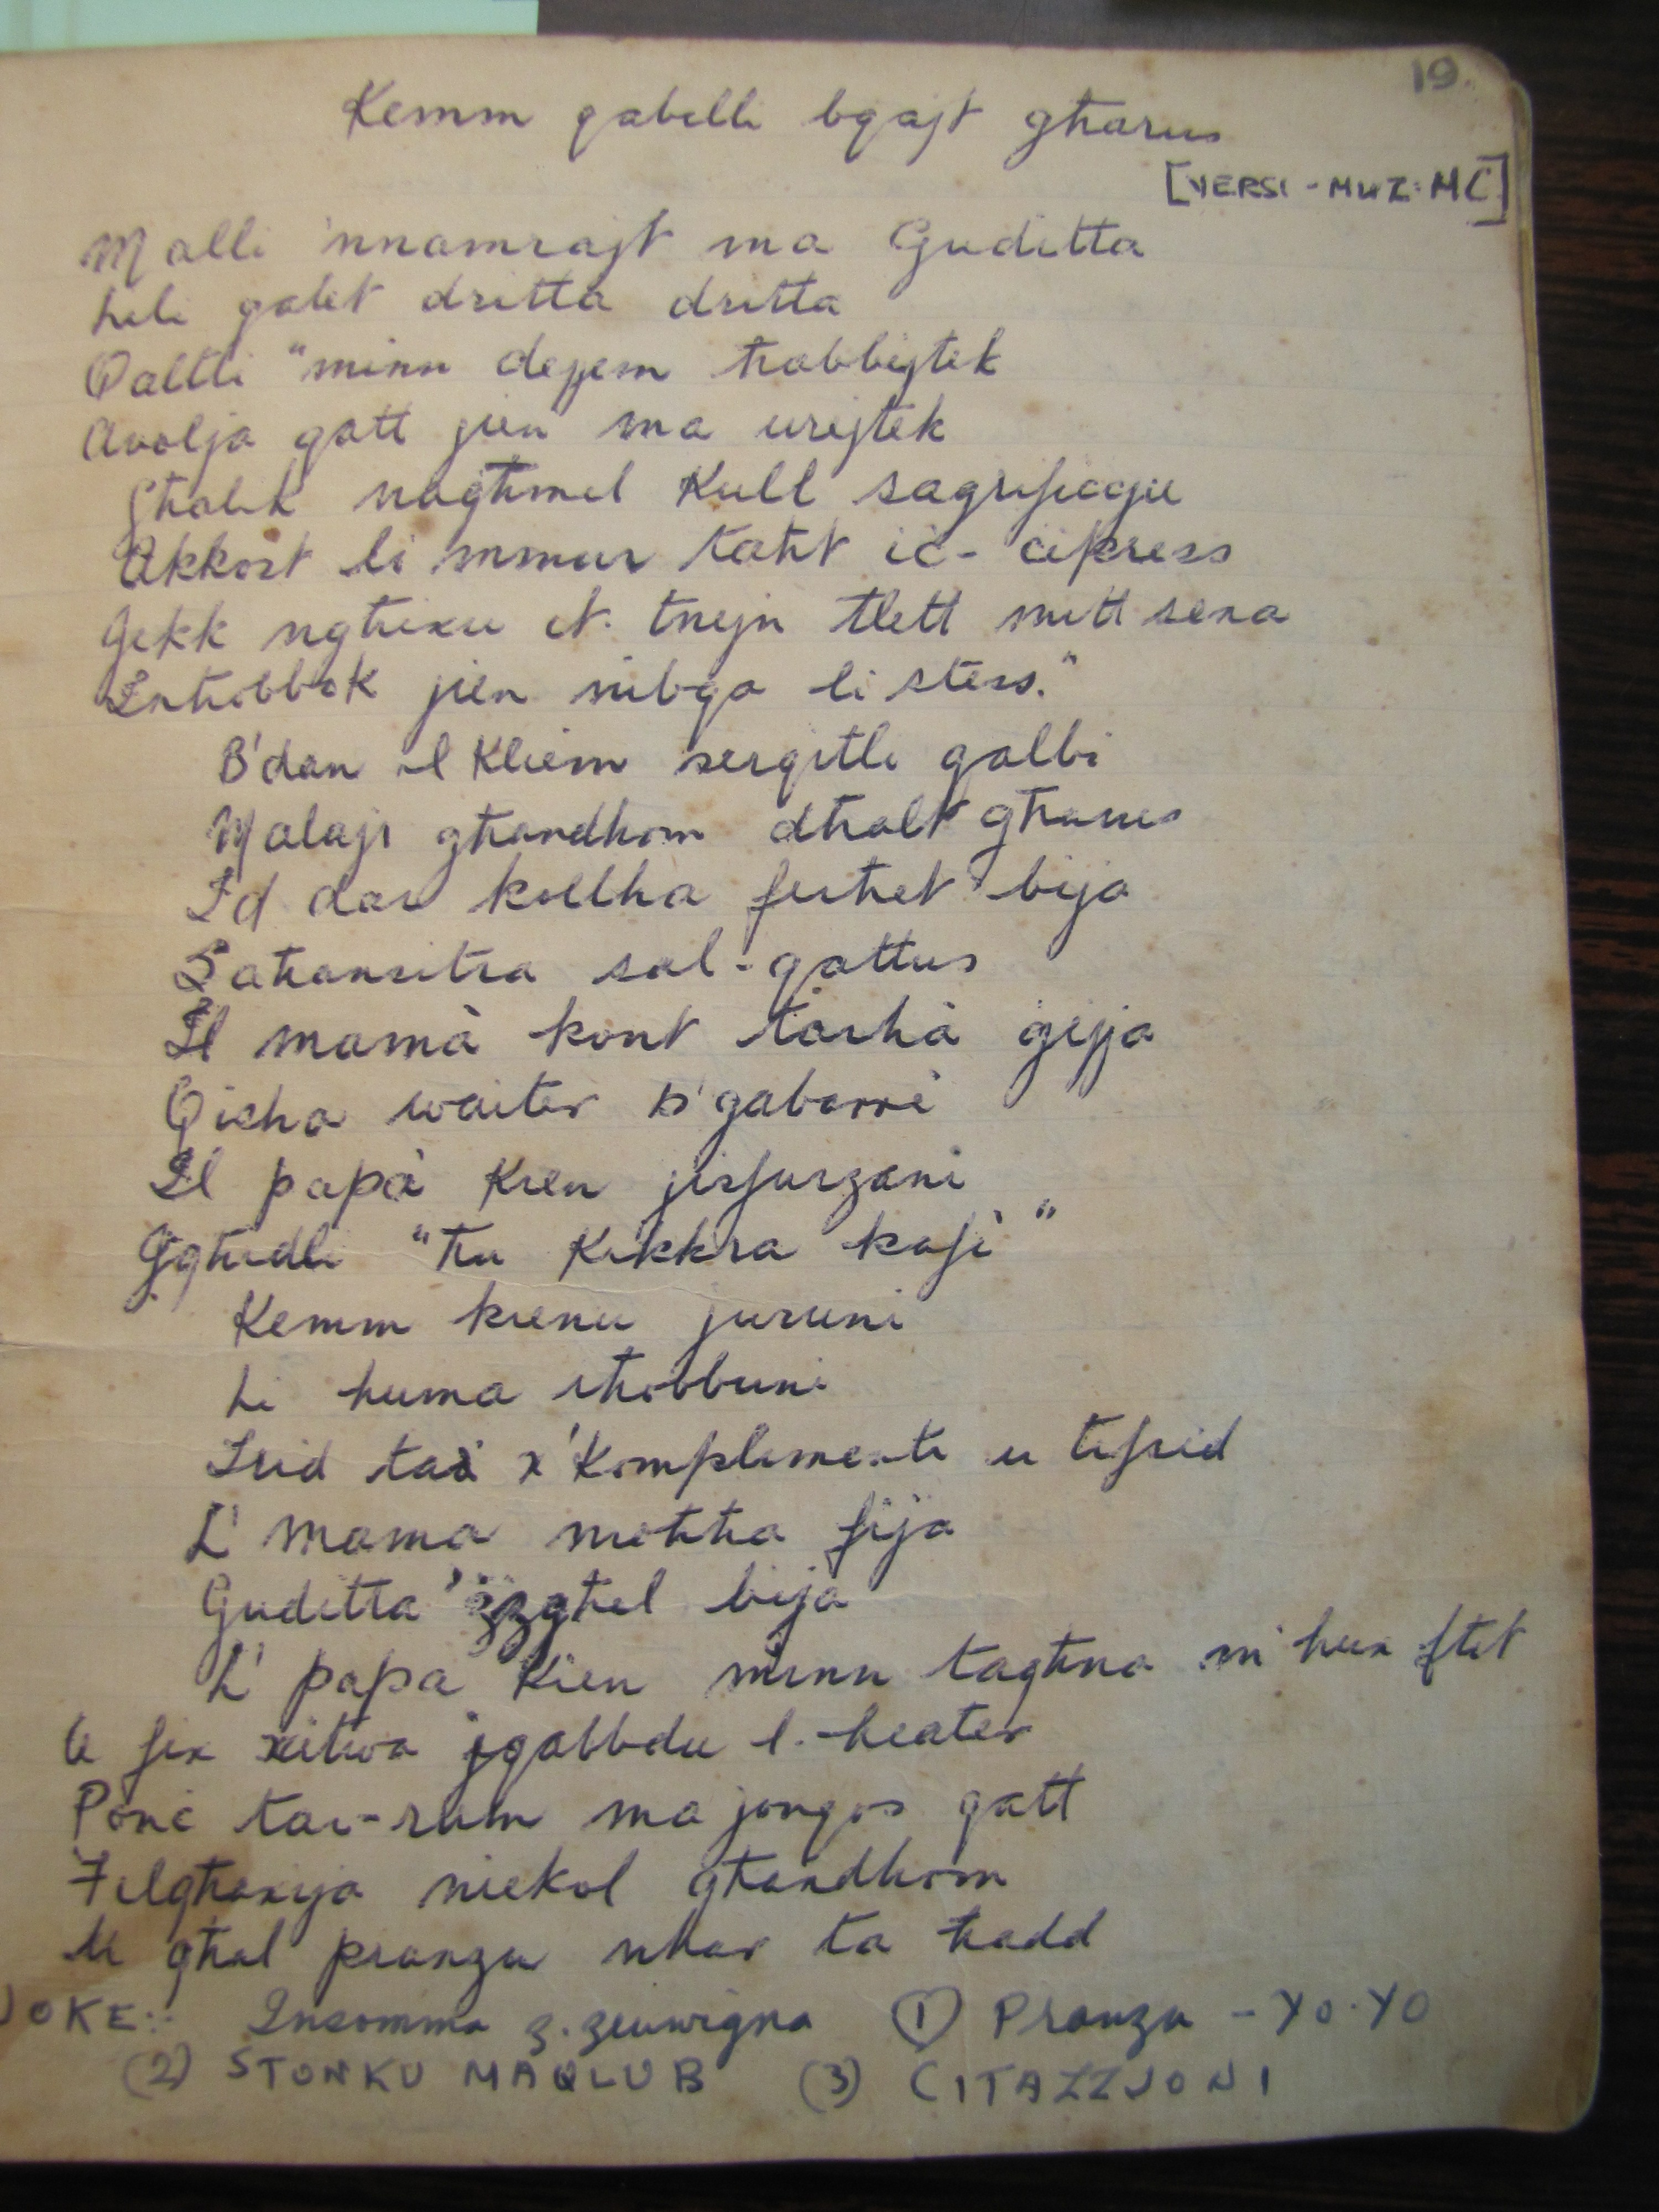 19.
Kemm qabelli bqajt għarus
[VERSI - MUZ: MC]
Malli 'nnamrajt ma Ġuditta
Lili qalet dritta dritta
Qaltli "minn dejjem ħabbejtek
Avolja qatt jien ma urejtek
Għalik nagħmel kull sagrifiċċju
Akkost li mmur taħt iċ-ċipress
Jekk ngħixu it-tnejn tlett mitt sena
Inħobbok jien nibqa li stess."
B'dan il kliem serqitli qalbi
Malajr għandhom dħalt għarus
Id dar kollha ferħet bija
Saħansitra sal-qattus
Il mamà kont tarhà ġejja
Qisha waiter b'gabarrè
Il papà kien jisfurzani
Jgħidli "ħu kikkra kafè"
Kemm kienu juruni
Li huma iħobbuni
Irid taċ x'komplimenti u tifrid
L' mama moħħa fija
Ġuditta 'żżgħel bija
L' papa kien minn tagħna m'hux ftit
U fix-xitwa jqabbdu l-heater
Ponċ tar-rum ma jonqos qatt
Filgħaxija niekol għandhom
U għal pranzu nhar ta ħadd
JOKE: Insomma z-zeuwigna (1) Pranzu - YO-YO
(2) STONKU MAQLUB (3) CITAZZJONI